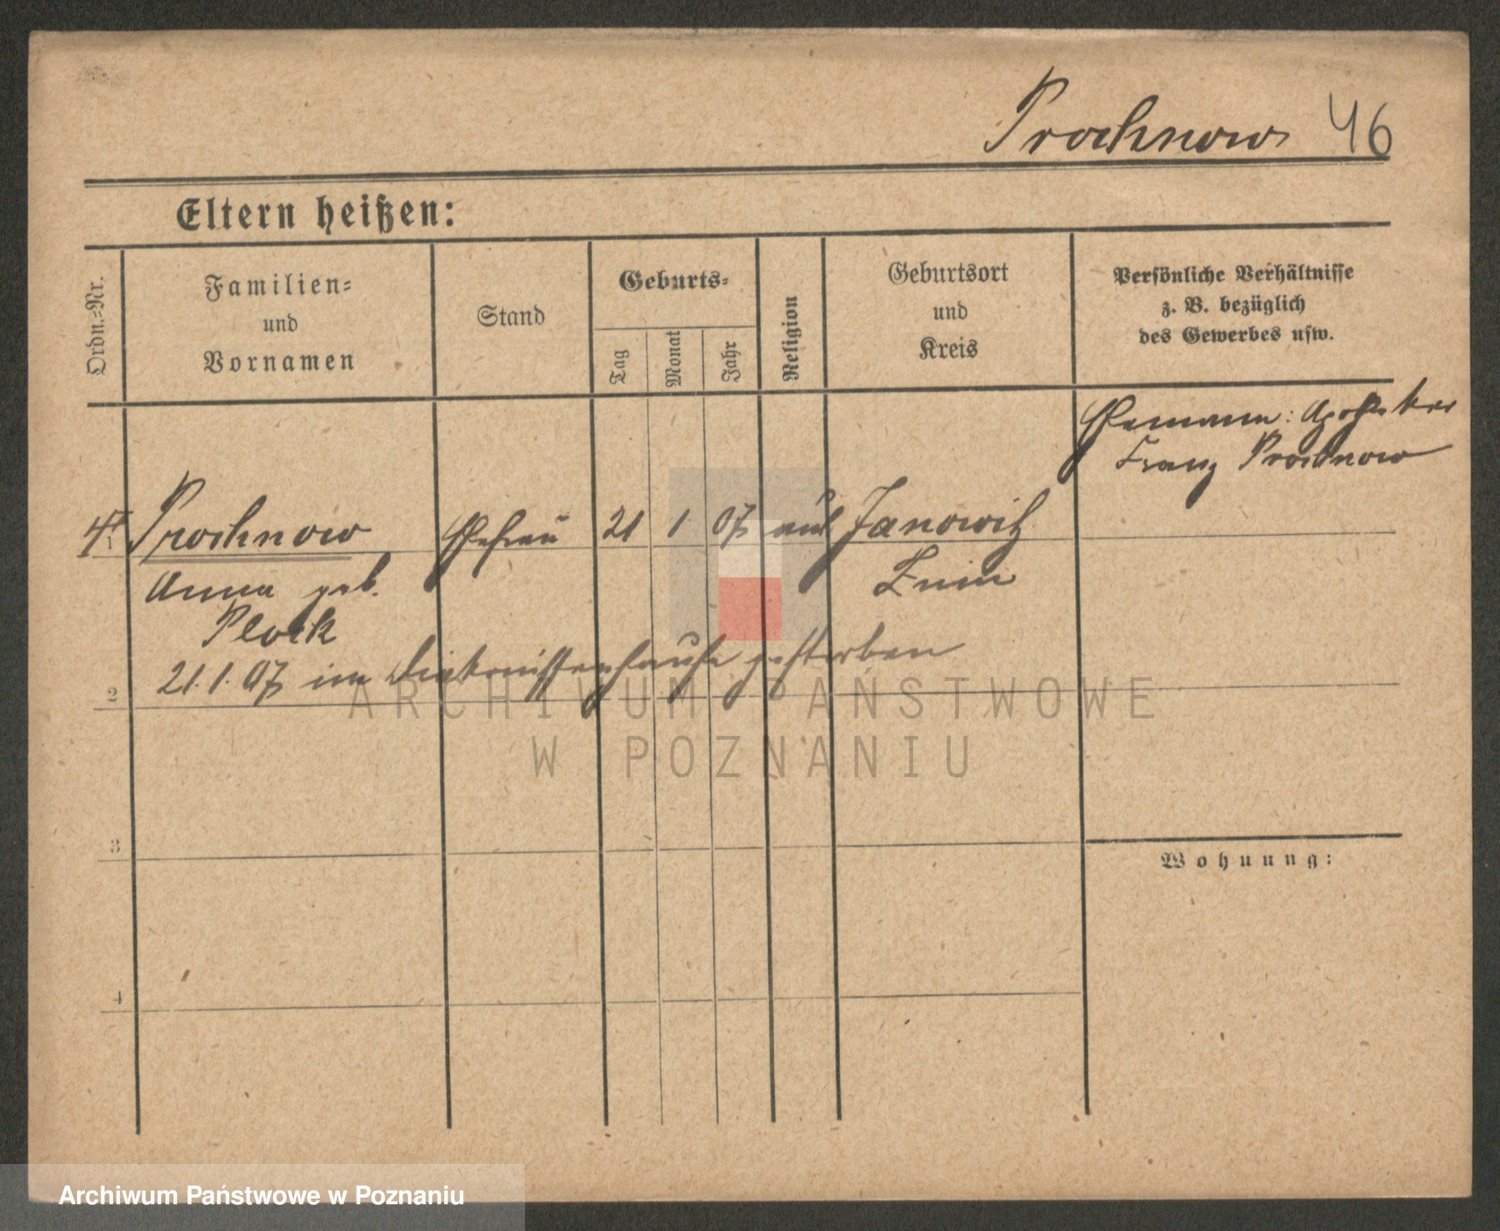 Prochnow 46
Eltern heißen:
Ordn.-Nr.
Familien-
und
Vornamen
Stand
Geburts-
Tag
Monat
Jahr
Religion
Geburtsort
und
Kreis
Persönliche Verhältnisse
z. B. bezüglich
des Gewerbes usw.
Ehemann: Apotheker
Franz Prochnow
1
Prochnow Ehefrau 21 1 07 aus Janowitz
Anna geb. Znin
Plock
21.1.07 im Diakonissenhause gestorben
2
ARCHIWUM PAŃSTWOWE
W POZNANIU
3
Wohnung:
4
Archiwum Państwowe w Poznaniu